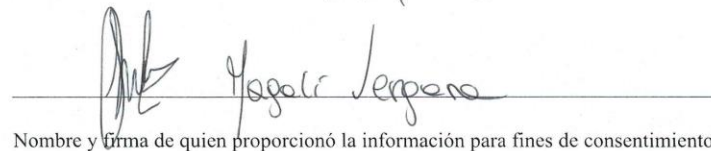 Magali Vergara
Nombre y firma de quien proporcionó la información para fines de consentimiento